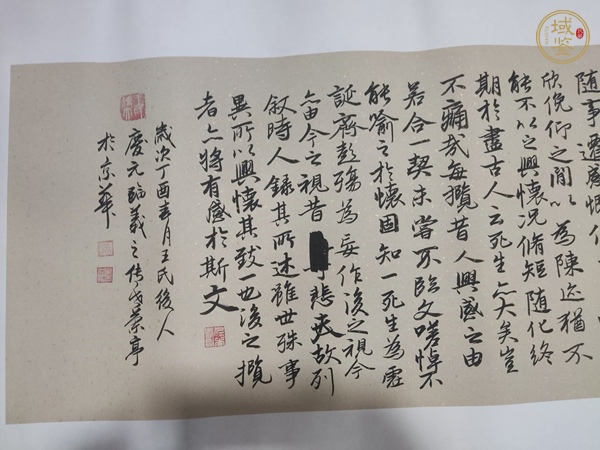 随事遷感慨
欣俛仰之間以為陳迹猶不
能不以之興懷況脩短随化終
期於盡古人云死生亦大矣豈
不痛哉每攬昔人興感之由
若合一契未嘗不臨文嗟悼不
能喻之於懷固知一死生為虛
誕齊彭殤為妄作後之視今
亦由今之視昔悲夫故列
敘時人錄其所述雖世殊事
異所以興懷其致一也後之攬
者亦將有感於斯文
歲次丁酉春月王氏後人
慶元臨羲之傳世蘭亭
於京華
域鉴